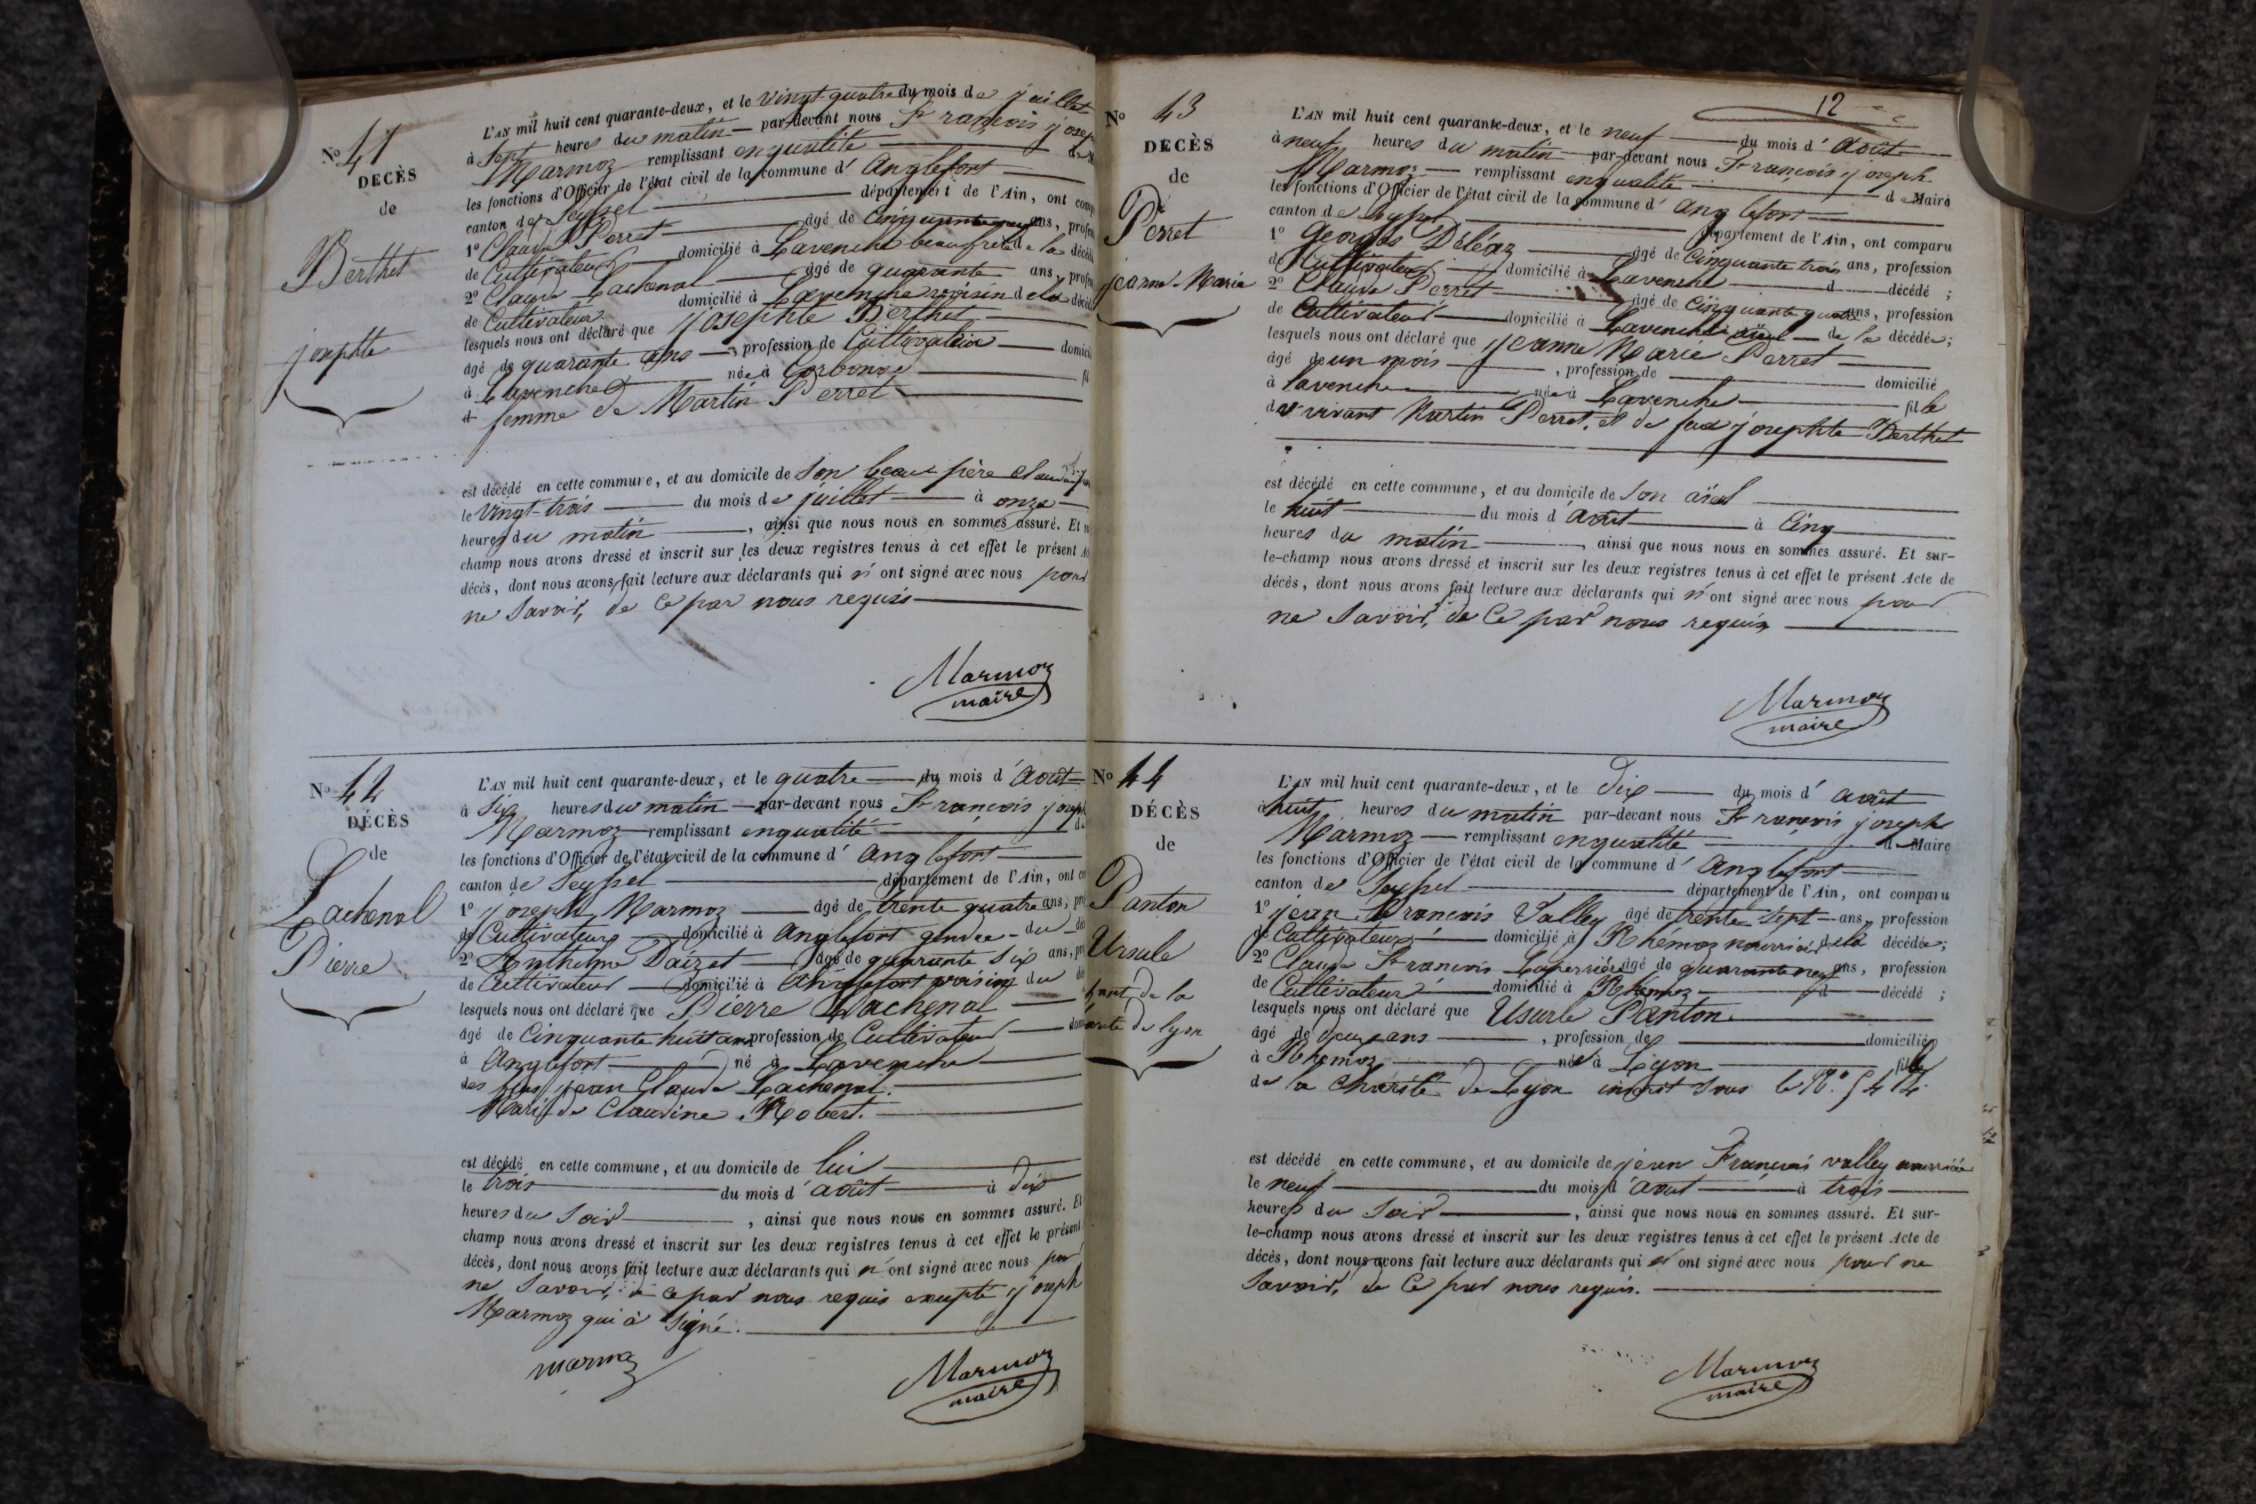 N° 41
DECÈS
de
Berthet
josephte
L'AN mil huit cent quarante-deux, et le vingt-quatre du mois de juillet
à sept heures du matin par-devant nous François joseph
Marmoz remplissant en qualité de
les fonctions d'Officier de l'état civil de la commune d'Anglefort
canton de Seyssel département de l'Ain, ont
1° Claude Perret âgé de ans,
de Cultivateur domicilié à Lavenche beaufrère de la
2° Claude Lachenal âgé de quarante ans,
de Cultivateur domicilié à Lavenche voisin de la
lesquels nous ont déclaré que josephte Berthet
âgé de quarante ans, profession de Cultivateur
à Lavenche née à Corbonod
femme de Martin Perret
est décédé en cette commune, et au domicile de son beau père
le vingt-trois du mois de juillet à onze
heures du matin, ainsi que nous nous en sommes assuré. Et
champ nous avons dressé et inscrit sur les deux registres tenus à cet effet le présent
décès, dont nous avons fait lecture aux déclarants qui n'ont signé avec nous pour
ne savoir, de ce par nous requis
Marmoz
maire
N° 42
DÉCÈS
de
Lachenal
Pierre
L'AN mil huit cent quarante-deux, et le quatre du mois d'Août
à six heures du matin par-devant nous François joseph
Marmoz remplissant en qualité
les fonctions d'Officier de l'état civil de la commune d'Anglefort
canton de Seyssel département de l'Ain, ont
1° joseph Marmoz âgé de trente quatre ans,
de Cultivateur domicilié à Anglefort gendre du
2° Anthelme Daizet âgé de quarante six ans,
de Cultivateur domicilié à Anglefort voisin du
lesquels nous ont déclaré que Pierre Lachenal
âgé de Cinquante huit ans profession de Cultivateur
à Anglefort né à Lavenche
des feus jean Claude Lachenal.
Mari de Claudine Robert.
est décédé en cette commune, et au domicile de lui
le trois du mois d'août à dix
heures du soir, ainsi que nous nous en sommes assuré. Et
champ nous avons dressé et inscrit sur les deux registres tenus à cet effet le présent
décès, dont nous avons fait lecture aux déclarants qui n'ont signé avec nous pour
ne savoir, de ce par nous requis excepté joseph
Marmoz qui à signé.
marmoz
Marmoz
maire
12
N° 43
DÉCÈS
de
Perret
jeanne-Marie
L'AN mil huit cent quarante-deux, et le neuf du mois d'Août
à neuf heures du matin par-devant nous François joseph
Marmoz remplissant en qualité de Maire
les fonctions d'Officier de l'état civil de la commune d'Anglefort
canton de Seyssel département de l'Ain, ont comparu
1° Georges Déléaz âgé de Cinquante trois ans, profession
de Cultivateur domicilié à Lavenche d décédé ;
2° Claude Perret âgé de Cinquante quatre ans, profession
de Cultivateur domicilié à Lavenche aïeul de la décédée ;
lesquels nous ont déclaré que jeanne Marie Perret
âgé de un mois, profession de domicilié
à Lavenche née à Lavenche fille
de vivant Martin Perret, et de feue josephte Berthet
est décédé en cette commune, et au domicile de son aïeul
le huit du mois d'Août à Cinq
heures du matin, ainsi que nous nous en sommes assuré. Et sur-
le-champ nous avons dressé et inscrit sur les deux registres tenus à cet effet le présent Acte de
décès, dont nous avons fait lecture aux déclarants qui n'ont signé avec nous pour
ne savoir, de ce par nous requis
Marmoz
maire
N° 44
DÉCÈS
de
Panton
Ursule
de la
de lyon
L'AN mil huit cent quarante-deux, et le Dix du mois d'août
à huit heures du matin par-devant nous François joseph
Marmoz remplissant en qualité d Maire
les fonctions d'Officier de l'état civil de la commune d'Anglefort
canton de Seyssel département de l'Ain, ont comparu
1° jean François Valley âgé de trente sept ans, profession
de Cultivateur domicilié à Rhémoz nourricier de la décédée ;
2° Claude François Laperrière âgé de quarante neuf ans, profession
de Cultivateur domicilié à Rhémoz d décédé ;
lesquels nous ont déclaré que Usurle Panton
âgé de deux ans, profession de domiciliée
à Rhémoz née à Lyon fille
de la Charité de Lyon inscrit sous le N°
est décédé en cette commune, et au domicile de jean François valley nourricier
le neuf du mois d'Août à trois
heures du soir, ainsi que nous nous en sommes assuré. Et sur-
le-champ nous avons dressé et inscrit sur les deux registres tenus à cet effet le présent Acte de
décès, dont nous avons fait lecture aux déclarants qui n'ont signé avec nous pour ne
savoir, de ce par nous requis.
Marmoz
maire